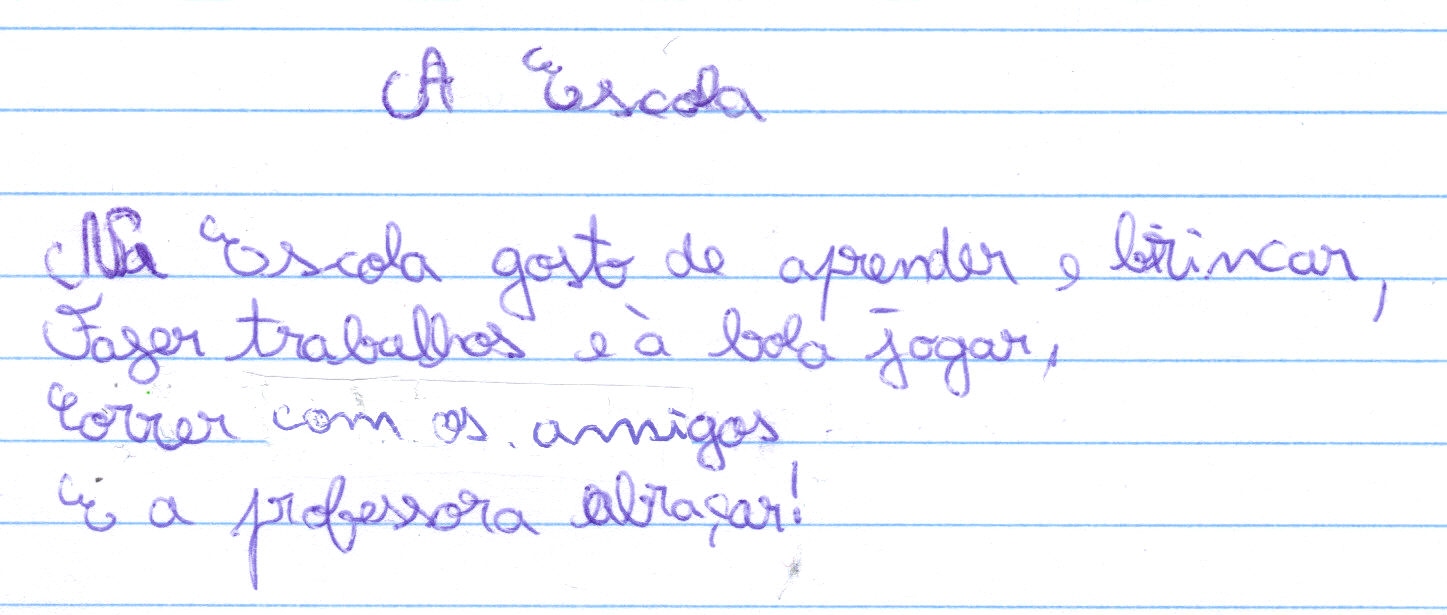 A Escola
Na Escola gosto de aprender e brincar,
Fazer trabalhos e à bola jogar,
Correr com os amigos
E a professora abraçar!